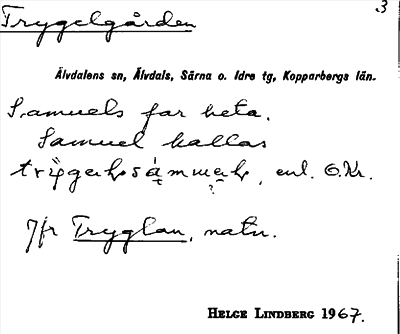 3
Trygelgården
Älvdalens sn, Älvdals, Särna o. Idre tg, Kopparbergs län.
Samuels far heta.
Samuel kallas
, enl. O.Kr.
Jfr Tryglan, natn.
HELGE LINDBERG 1967.